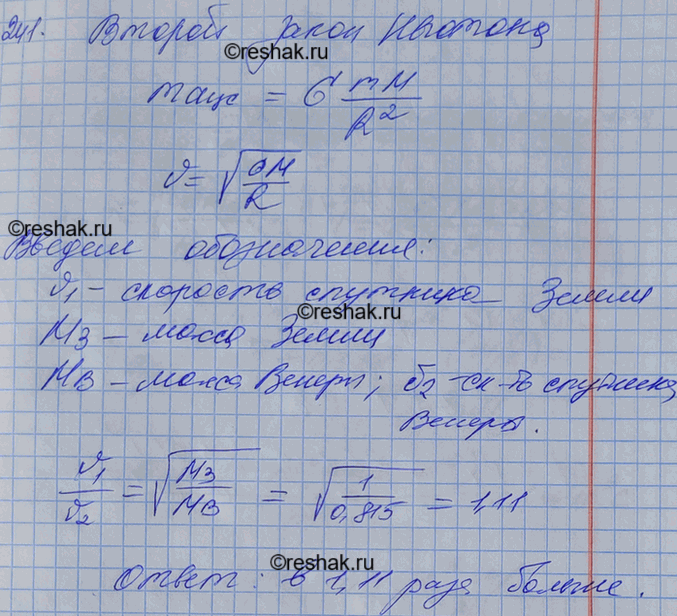 241. Второй закон Ньютона
©reshak.ru
maцс = G mM/R²
v = √(GM/R)
©reshak.ru
Введем обозначения:
v₁ – скорость спутника Земли
Mз – масса Земли
Mв – масса Венеры; v₂ – ск-ть спутника
Венеры.
©reshak.ru
v₁/v₂ = √(Mз/Mв) = √(1/0,815) = 1,11
©reshak.ru
Ответ: в 1,11 раза больше.